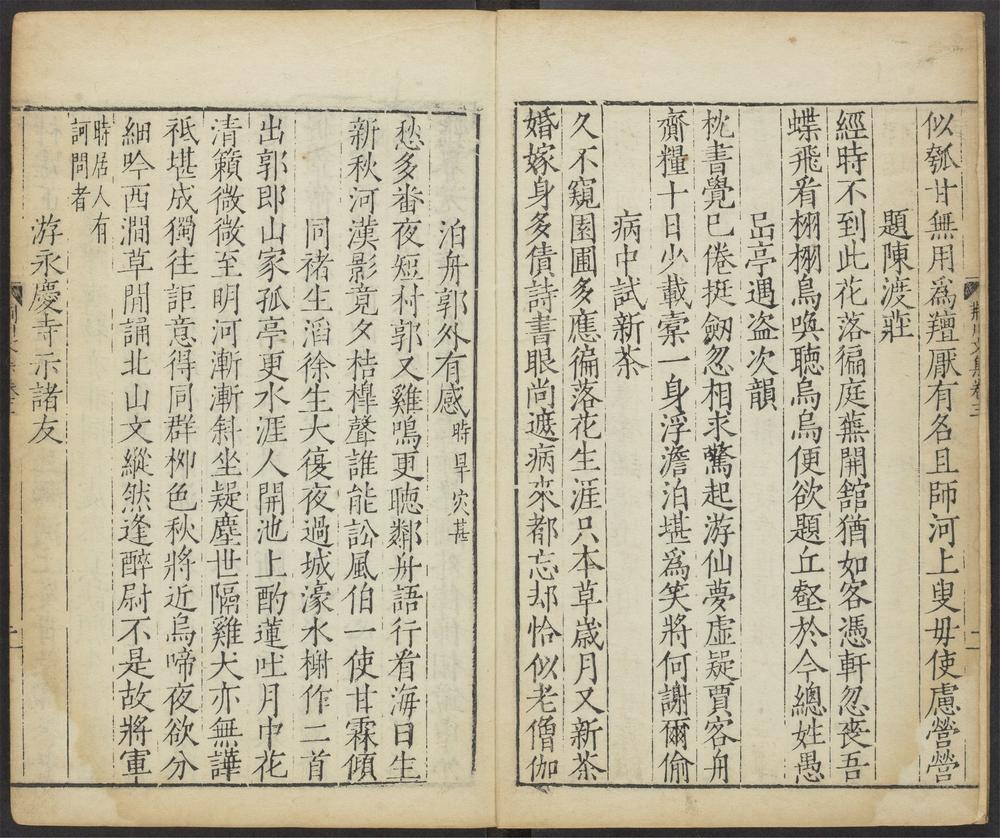 似瓠甘無用爲羶厭有名且師河上叟毋使慮營營
題陳渡莊
經時不到此花落徧庭蕪開舘猶如客憑軒忽喪吾
蝶飛看栩栩鳥喚聽烏烏便欲題丘壑於今總姓愚
呂亭遇盗次韻
枕書覺已倦挺劒忽相求驚起游仙夢虛疑賈客舟
齎糧十日少載橐一身浮澹泊堪爲笑將何謝爾偷
病中試新茶
久不窺園圃多應徧落花生涯只本草歲月又新茶
婚嫁身多債詩書眼尚遮病來都忘却恰似老僧伽
泊舟郭外有感時旱灾甚
愁多番夜短村郭又雞鳴更聽鄰舟語行看海日生
新秋河漢影竟夕桔橰聲誰能訟風伯一使甘霖傾
同褚生滔徐生大復夜過城濠水榭作二首
出郭即山家孤亭更水涯人開池上酌蓮吐月中花
清籟微微至明河漸漸斜坐疑塵世隔雞犬亦無譁
祗堪成獨往詎意得同群柳色秋將近烏啼夜欲分
細吟西澗草閒誦北山文縱然逢醉尉不是故將軍
時居人有
訶問者
游永慶寺示諸友
荊川文集卷三
二